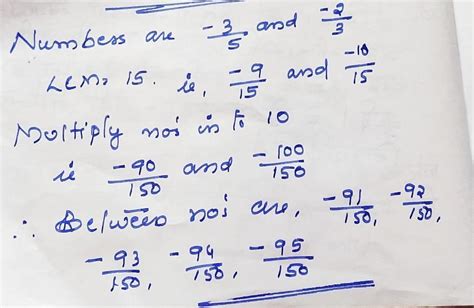 Numbers are -3/5 and -2/3
LCM = 15. ie, -9/15 and -10/15
Multiply no's in to 10
ie -90/150 and -100/150
∴ Between no's are, -91/150, -92/150,
-93/150, -94/150, -95/150